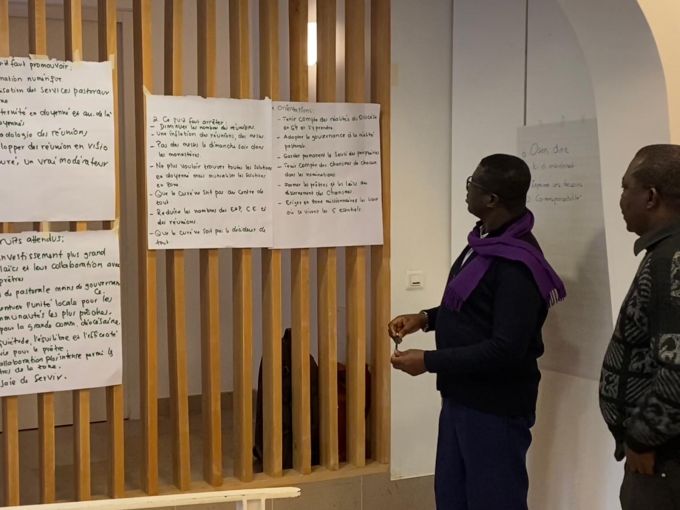 faut promouvoir:
mation numérique
Services pastoraux
ternité en doyenné et au-delà
doyenné
odologie des réunions,
lopper des réunion en visio
curé, un vrai modérateur
uits attendus:
nvestissement plus grand
laïcs et leur collaboration avec
prêtres
de pastorale moins de gouvernance
l'unité locale pour les
mmunautés les plus proches.
pour la grande comm. diocésaine.
l'équilibre et l'efficacité
pour le prêtre.
collaboration plus intense parmi les
tres de la zone.
Joie de Servir.
2. Ce qu'il faut arrêter:
- Diminuer les nombres des réunions.
- Une inflation des réunions, des messes
- Pas des messes le dimanche soir dans
les monastères.
- Ne plus vouloir trouver toutes les solutions
en doyenné mais mutualiser les solutions
en zone
- Que le curé ne soit pas au centre de
tout
- Réduire les nombres des EAP, CE et
des réunions.
- Que le curé ne soit pas le décideur de
tout
orientations:
- Tenir compte des réalités du Diocèse
en
- Adapter la gouvernance à la réalité
pastorale
- Garder permanent le souci des périphéries
- Tenir compte des charismes de chacun
dans les nominations
- Former les prêtres et les laïcs au
discernement des charismes.
- Eriger en zone missionnaires les lieux
où se vivent les 5 essentiels
Coresponsabilité